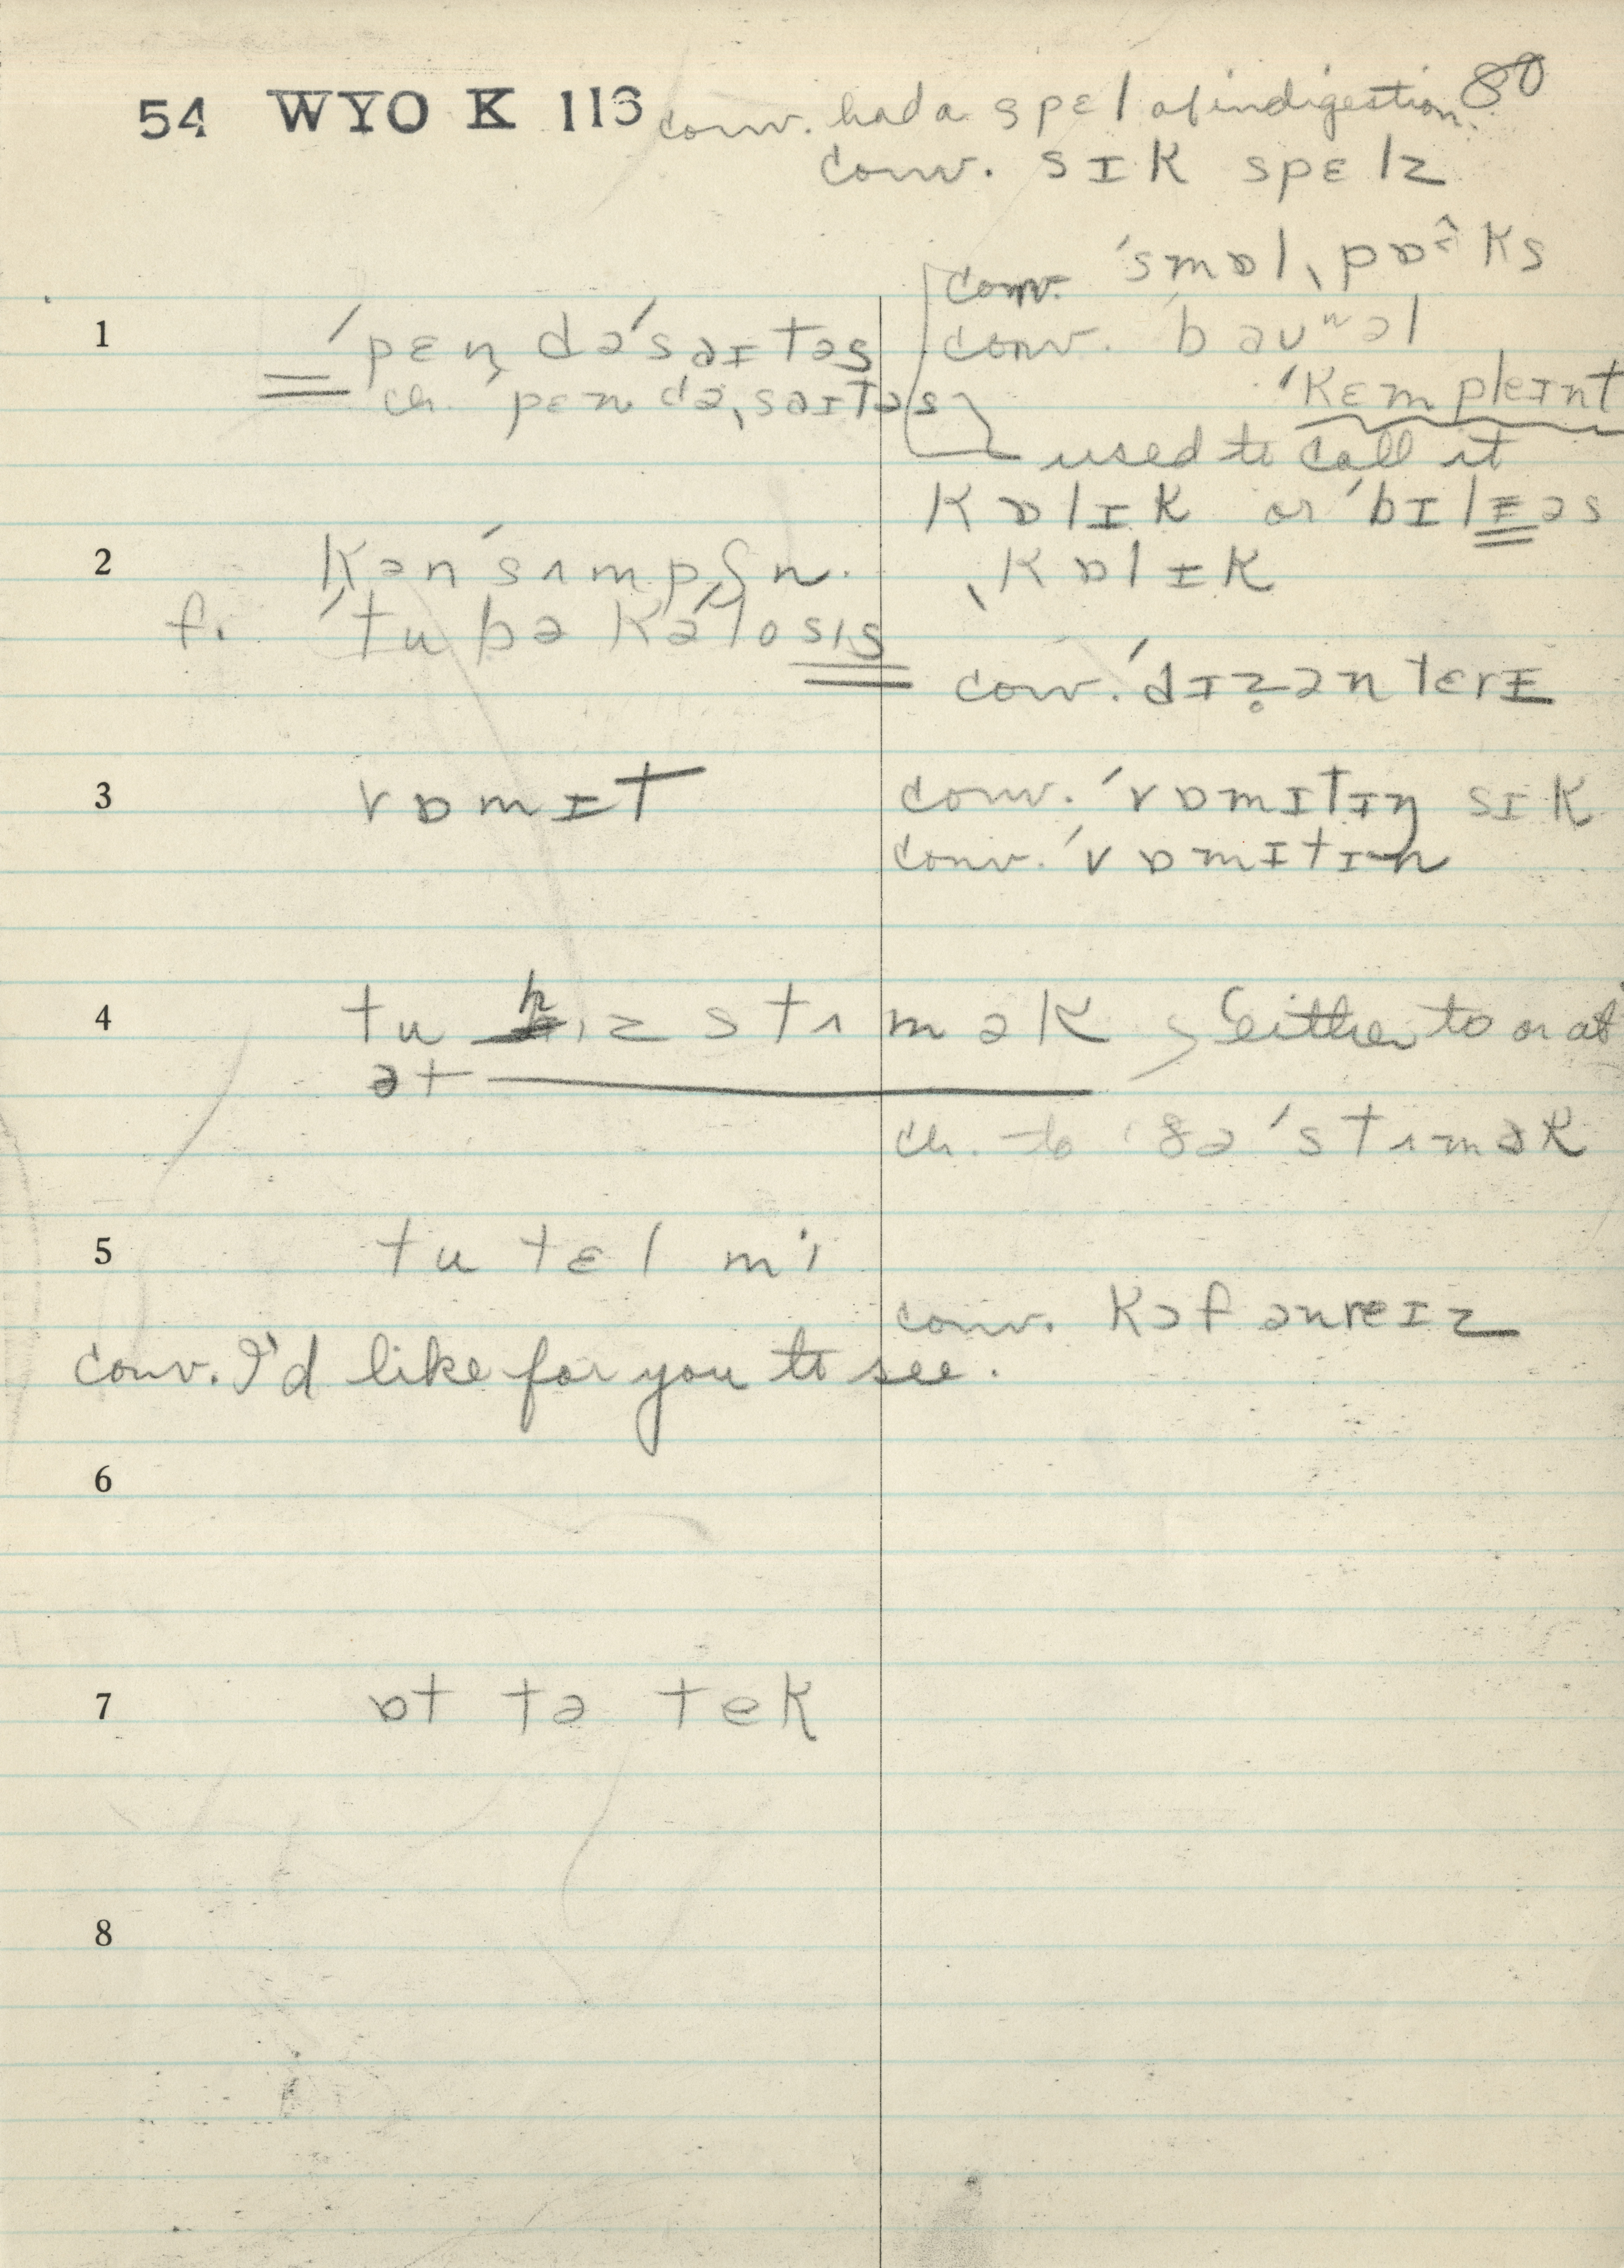 54 WYO K 113 conv. had a spɛl of indigestion. 80
conv. sɪk spɛlz
conv. ˈsmɒlˌpɒ^ks
1 ˈpɛn̩dəˈsaɪtəs
conv. ˈbauⁿəl
ˈkɛmpleɪnt
ch. ˈpɛndəˌsaɪtəs
used to call it
kɒlɪk or ˈbɪlɪəs
ˌkɒlɪk
2 kənˈsʌmpʃn.
f. ˈtubəkəˈlosɪs
conv. ˈdɪz̥əntɛrɪ
3 vɒmɪt
conv. ˈvɒmɪtɪŋ sɪk
conv. ˈvɒmɪtɪn
4 tu hɪz stʌmək
either to or at
ət
ch. to ðə ˈstʌmək
5 tu tɛl mi
conv. kəf ənreɪz
conv. I'd like for you to see.
6
7 ɒt tə tek
8